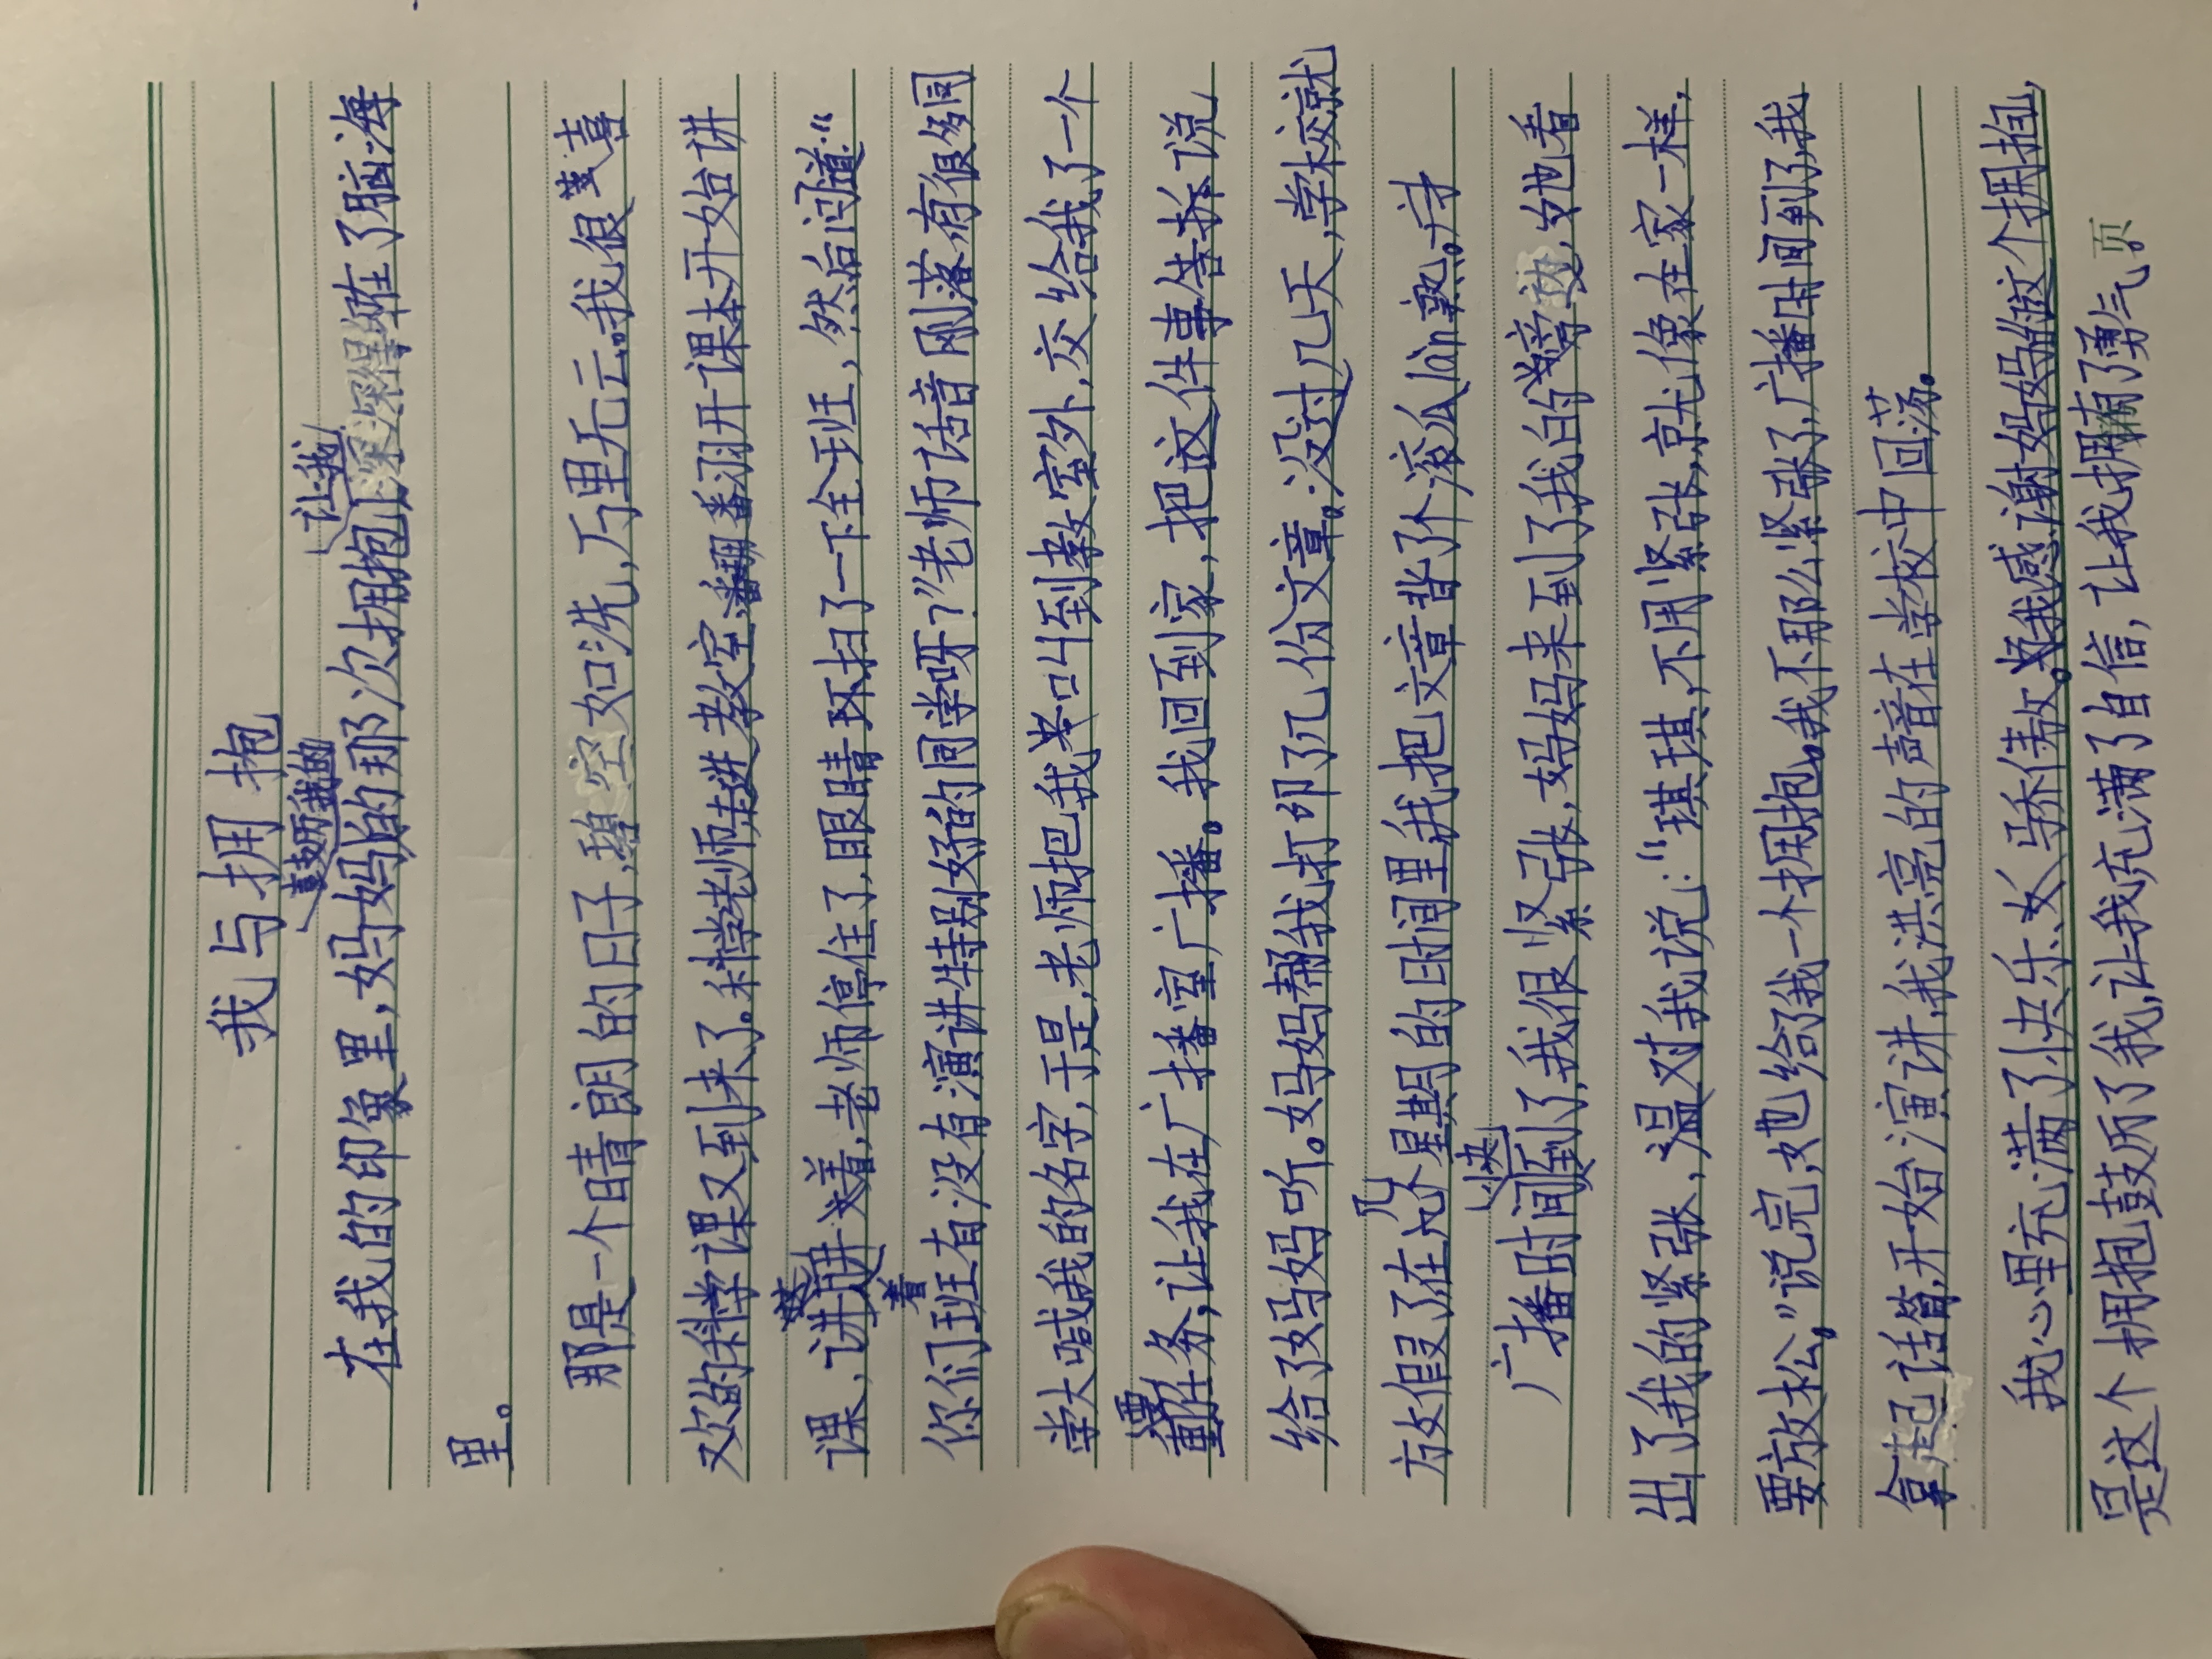 我与拥抱
在我的印象里，妈妈鼓历我的那次拥抱让我深深得烙在了脑海
里。
那是一个晴朗的日子，碧空如洗，万里无云。我很喜
欢的科学课又到来了。科学老师走进教室翻翻开课本开始讲
课，讲着讲着，老师停住了，眼睛环扫了一下全班，然后问道：“
你们班有没有演讲特别好的同学呀？”老师话音刚落有很多同
学大喊我的名字，于是，老师把我叫到教室外，交给我了一个
任务，让我在广播室广播。我回到家，把这件事告拆说
给了妈妈听。妈妈帮我打印了几份文章。没过几天，学校就
放假了在几个星期的时间里我把文章背了个滚瓜làn熟。
广播时间快到了，我很紧张，妈妈来到了我的旁边，她看
出了我的紧张，温对我说：“琪琪，不用紧张，就像在家一样，
要放松。”说完，她给了我一个拥抱。我不那么紧张了，广播时间到了，我
拿起话筒，开始演讲，我洪亮的声音在学校中回荡。
我心里充满了快乐、骄傲。我感谢妈妈做这个拥抱，
是这个拥抱鼓历了我，让我充满了自信，让我拥有了勇气
页